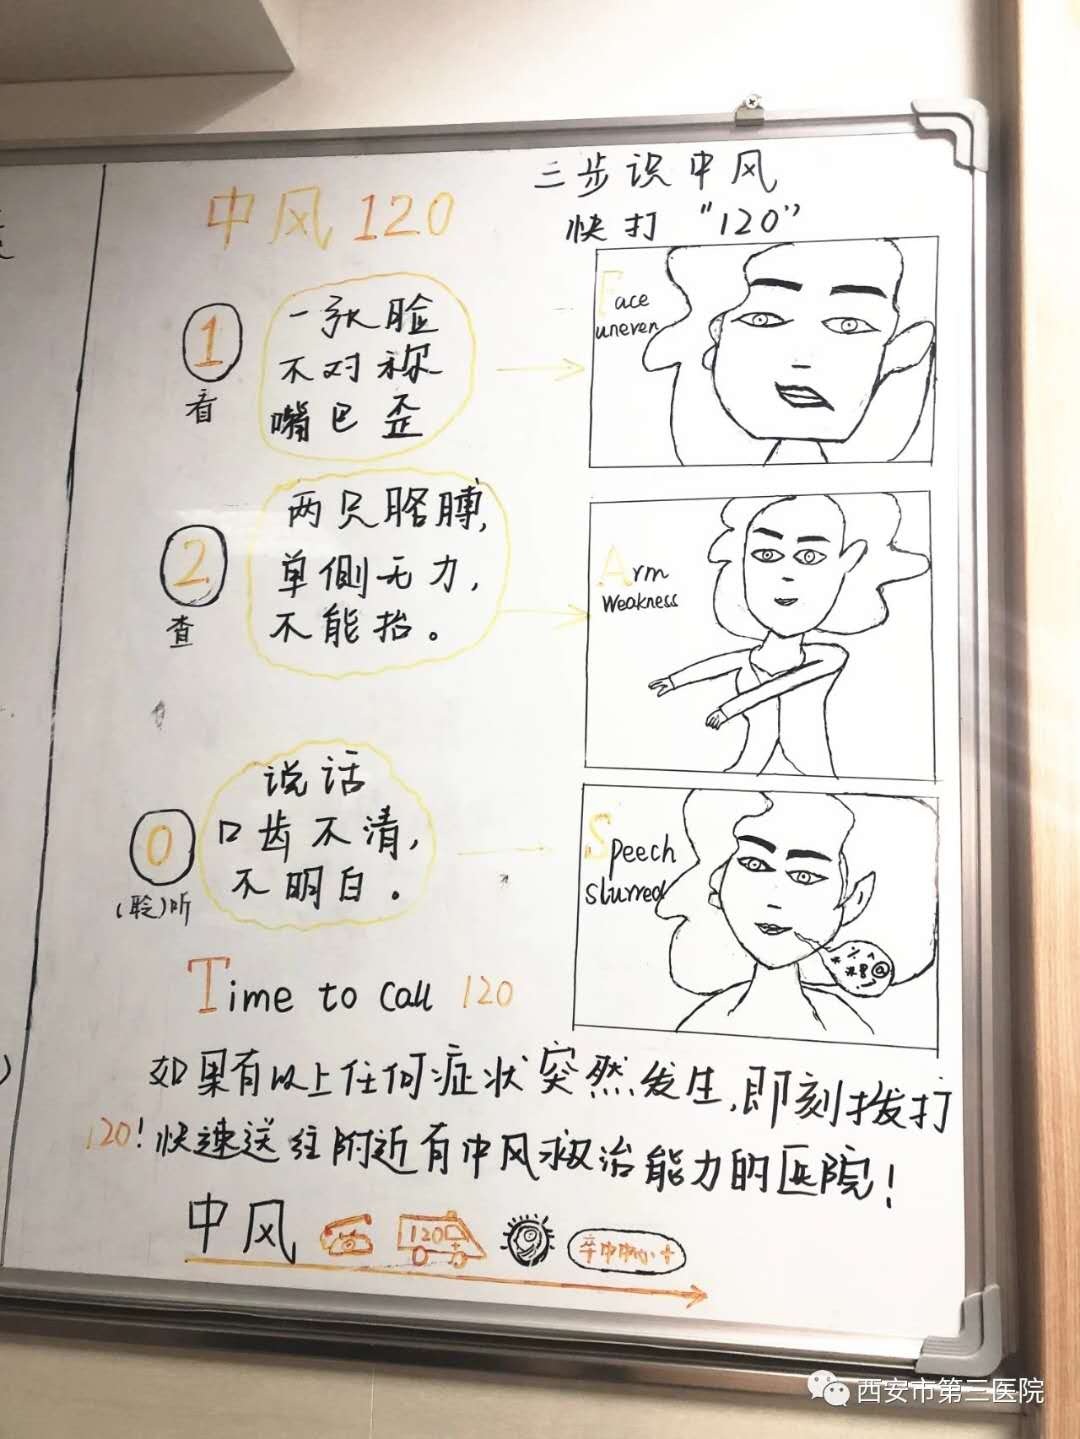 中风120
三步识中风
快打“120”
1
看
一张脸
不对称
嘴巴歪
Face
uneven
2
查
两只胳膊,
单侧无力,
不能抬。
Arm
Weakness
0
(聆)听
说话
口齿不清,
不明白。
Speech
slurred
Time to call 120
如果有以上任何症状突然发生,即刻拨打
120!快速送往附近有中风救治能力的医院!
中风
120
卒中中心+
西安市第三医院